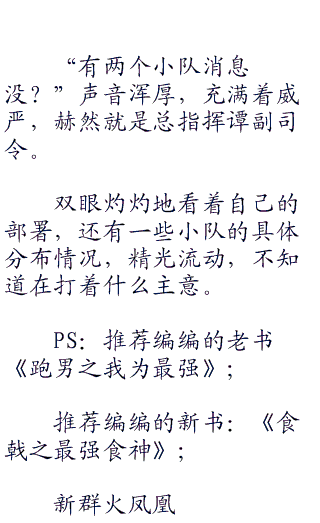 “有两个小队消息
没？”声音浑厚，充满着威
严，赫然就是总指挥谭副司
令。
双眼灼灼地看着自己的
部署，还有一些小队的具体
分布情况，精光流动，不知
道在打着什么主意。
PS：推荐编编的老书
《跑男之我为最强》；
推荐编编的新书：《食
戟之最强食神》；
新群火凤凰